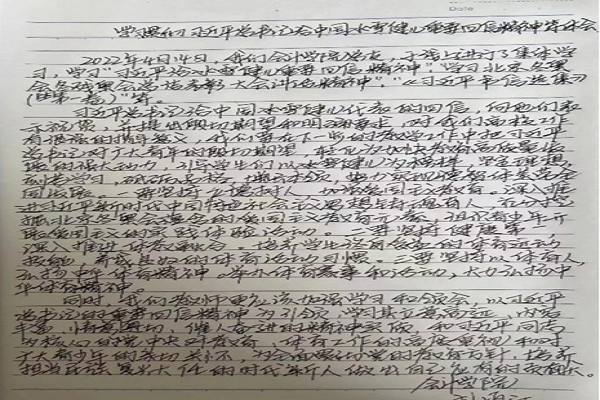 学习贯彻习近平总书记给中国冰雪健儿重要回信精神有体会
Date
2022年4月14日,我们会计学院党支,于线上进行了集体学
习,学习"习近平给冰雪健儿重要回信精神",学习北京冬奥
会冬残奥会总结表彰大会讲话精神",《习近平书信选集
(第一卷)》等。
习近平总书记给中国冰雪健儿代表的回信,向他们表
示祝贺,并提出殷切期望和明确要求,对我们高校工作
有很强的指导意义,我们要在下一步的教学工作中把习近平
总书记对广大青年的殷切期望,转化为加快教育高质量发
展的强大动力,引导学生们以冰雪健儿为榜样,坚定理想,
刻苦学习,砥砺品格,增长才干,努力实现德智体美劳全
面发展。一要坚持立德树人,加强爱国主义教育。深入推
进习近平新时代中国特色社会主义思想铸魂育人,在
北京冬奥会蕴含的爱国主义教育元素,组织青少年开
展爱国主义的实践体验活动。二要坚持健康第一,
深入推进体教融合。培养学生终身的体育运动
技能,养成良好的体育活动习惯。三要坚持以体育人,
弘扬中华体育精神。举办体育赛事和活动,大力弘扬中
华体育精神。
同时,我们教师更应该加强学习和领会,以习近平
总书记的重要回信精神为引领,学习其立意高远、内容
丰富、情真意切、催人奋进的精神实质,和习近平同志
为核心的党中央对教育、体育工作的高度重视和对
广大青少年的亲切关怀,为全面贯彻党的教育方针,培养
担当民族复兴大任的时代新人做出自己应有的贡献。
会计学院